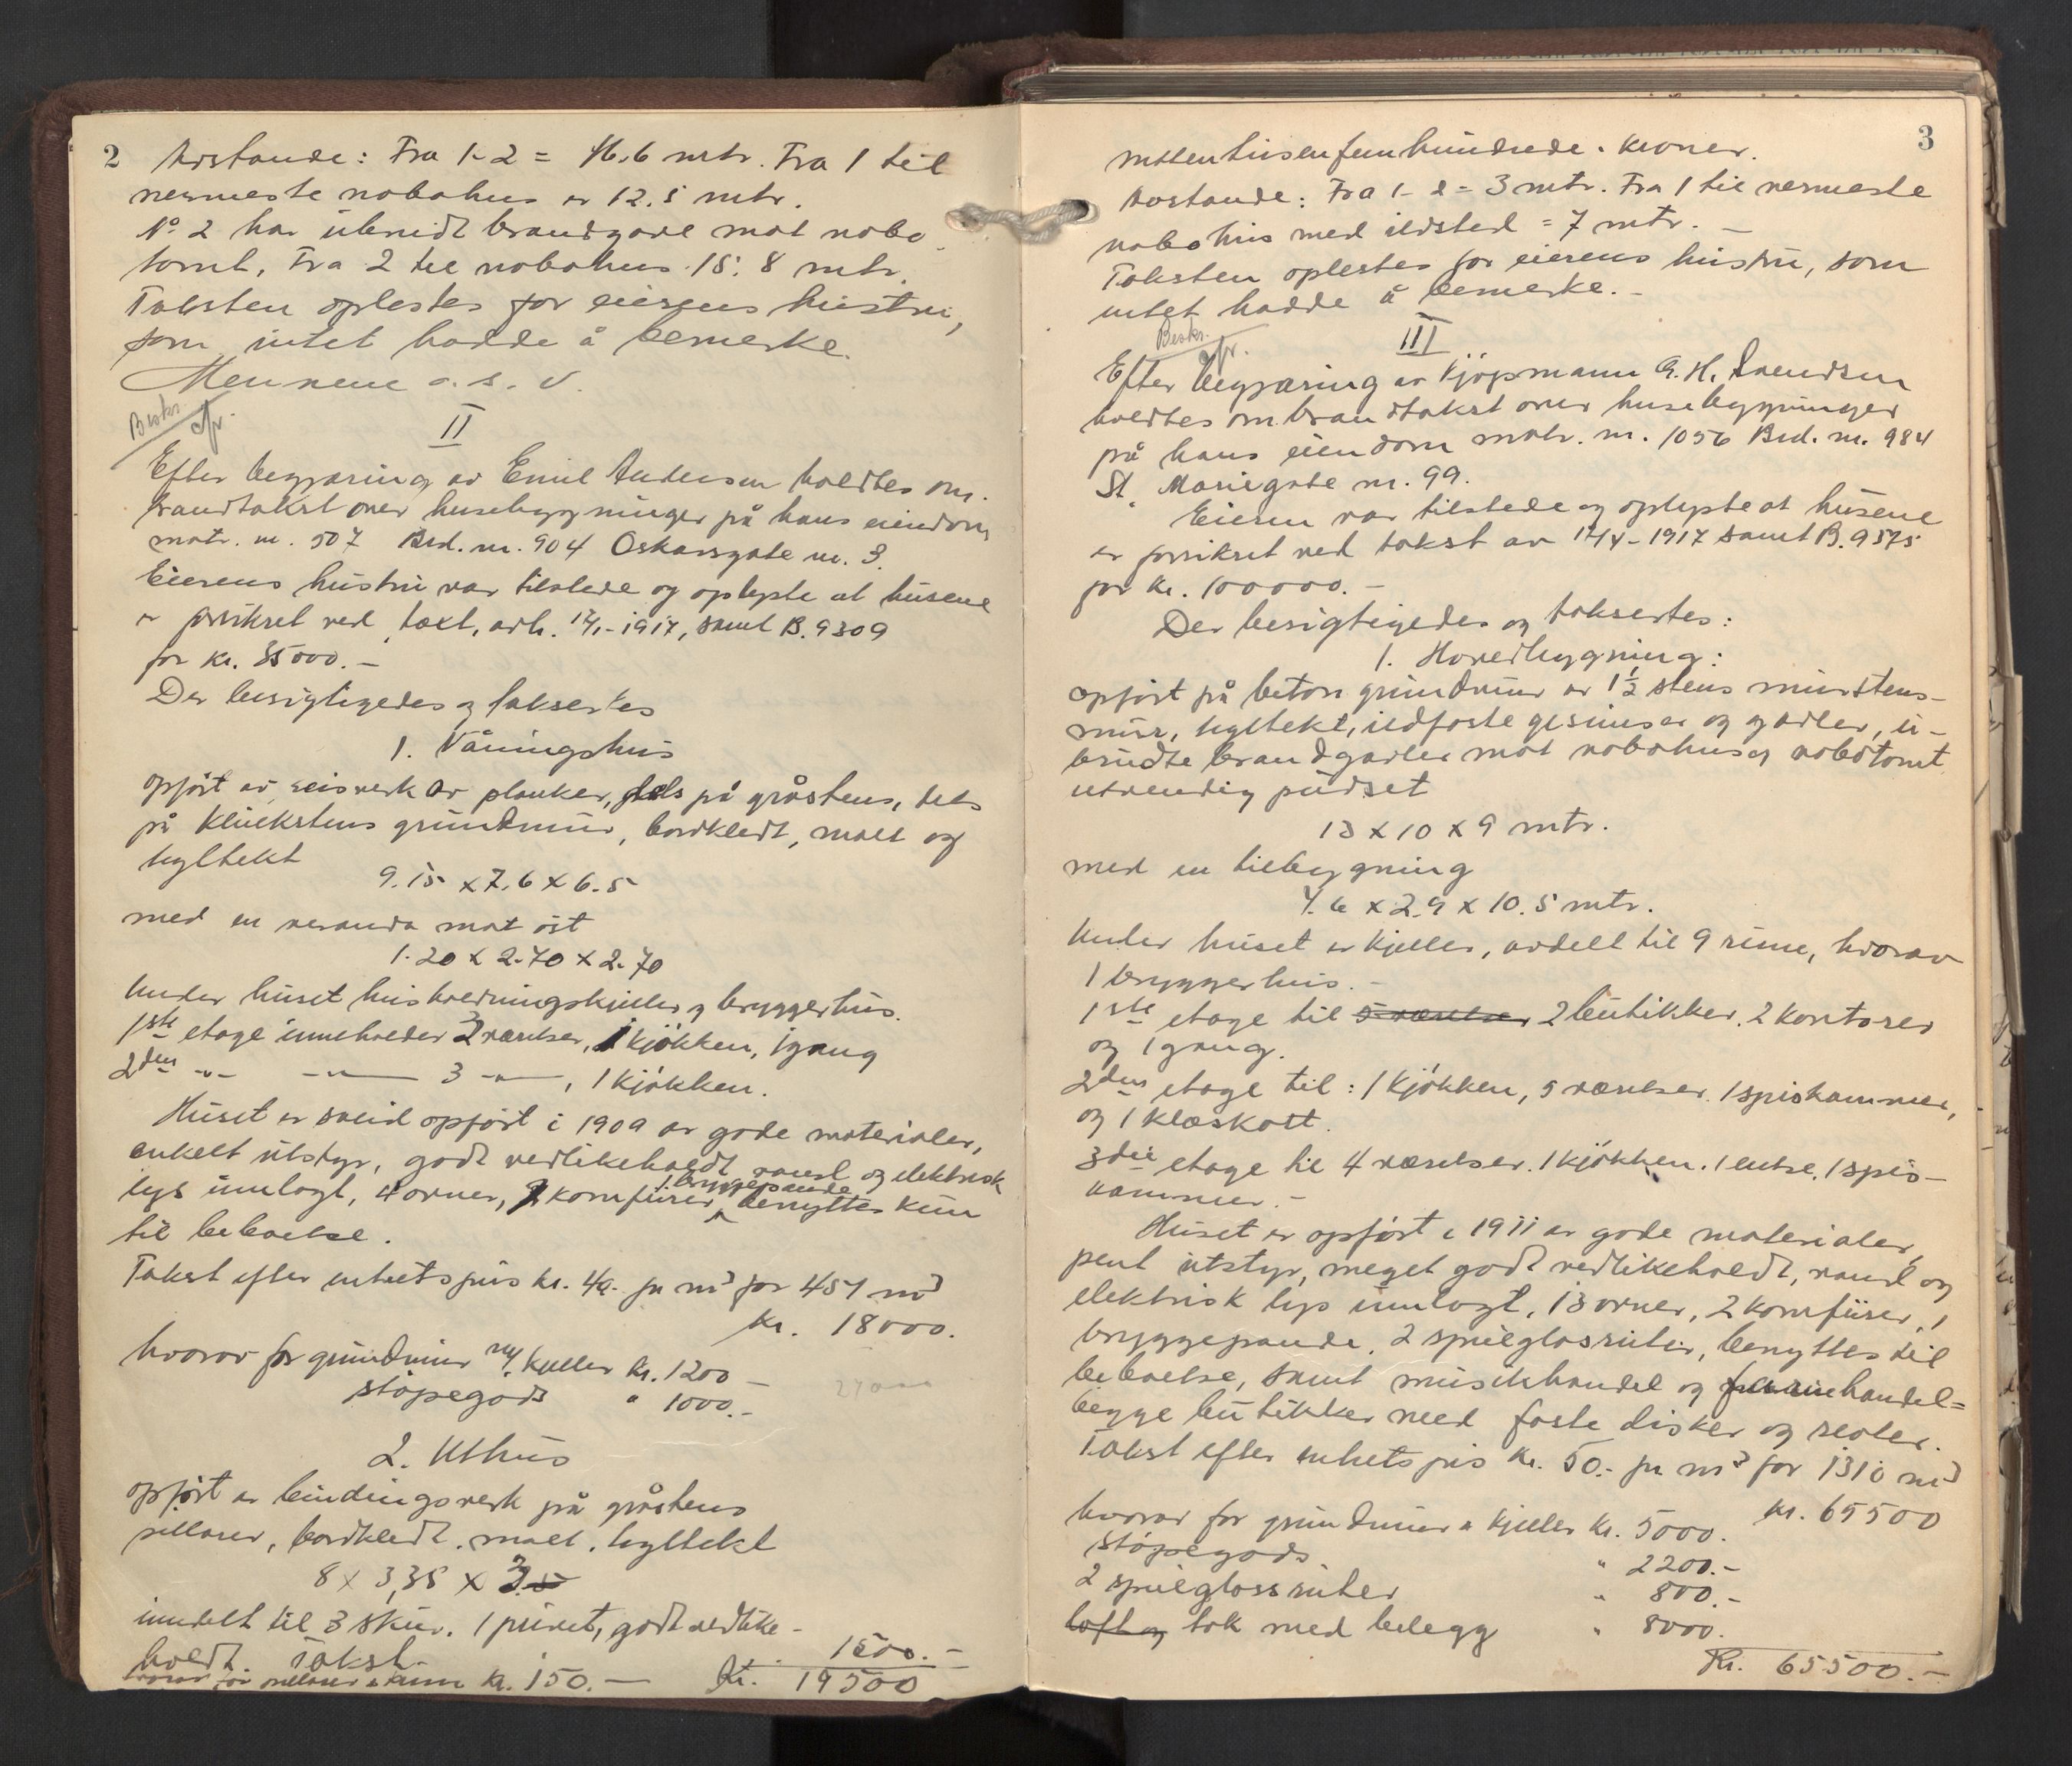 2 Avstande: Fra 1-2 = 16.6 mtr. Fra 1 til
nermeste nabohus er 12.5 mtr.
No 2 har ubrudt brandgavl mot nabo
tomt, Fra 2 til nabohus 15.8 mtr.
Taksten oplestes for eierens hustru,
som intet hadde å bemerke.
Mennene o. s. v.
Beskr.
II
Efter begjæring av Emil Andersen holdtes om.
brandtakst over husebygninger på hans eiendom
matr. nr. 507 Brd. nr. 904 Oskarsgate nr. 3.
Eierens hustru var tilstede og oplyste at husene
er forsikret ved taxt, avh. 1917, samt B. 9309
for kr. 35000.-
Der besigtigedes og taksertes
1. Våningshus
opført av reisverk av planker, dels på gråstens, dels
på klinckstens grundmur, bordkledt, malt og
tegltekt
9.15 x 7.6 x 6.5
med en veranda mot øst
1.20 x 2.70 x 2.70
Under huset husholdningskjeller og bryggerhus.
1ste etage inneholder 2 værelser, 1 kjøkken, 1 gang
2den -"- -"- 3 -"-, 1 kjøkken.
Huset er opført i 1909 av gode materialer,
enkelt utstyr, godt vedlikeholdt, vand og elektrisk
1 bryggepande
lys innlagt, 4 ovner, 2 komfurer, benyttes kun
til beboelse.
Takst efter enhetspris kr. 40. pr m³ for 451 m³
Kr. 18000.
hvorav for grundmur m/ kjeller kr. 1200 -
støpegods " 1000.-
2. Uthus
opført av bindingsverk på gråstens
pillarer, bordkledt, malt, tegltekt
8 x 3,35 x 3
inndelt til 3 skur, 1 privet, godt vedlike-
holdt. Takst 1500.-
hvorav for pillarer kr. 150.- Kr. 19500
3
nittentusenfemhundrede. kroner.
Avstande: Fra 1-2 = 3 mtr. Fra 1 til nermeste
nabohus med ildsted = 7 mtr. -
Taksten oplestes for eierens hustru, som
intet hadde å bemerke.-
Beskr.
III
Efter begjæring av kjøpmann G. H. Svendsen
holdtes om brandtakst over husebygninger
på hans eiendom matr. nr. 1056 Brd. nr. 984
St. Mariegate nr. 99.
Eieren var tilstede og oplyste at husene
er forsikret ved takst av 1917 samt B. 9575
for kr. 100000.-
Der besigtigedes og taksertes:
1. Hovedbygning:
opført på beton grundmur av 1½ stens murstens-
mur, tegltekt, ildfaste gesimser og gavler, u-
brudte brandgavler mot nabohus og nabotomt
utvendig pudset
13 x 10 x 9 mtr.
med en tilbygning
4.6 x 2.9 x 10.5 mtr.
Under huset er kjeller, avdelt til 9 rum, hvorav
1 bryggerhus.-
1ste etage til 5 værelser 2 butikker. 2 kontorer
og 1 gang.
2den etage til: 1 kjøkken, 5 værelser. 1 spiskammer,
og 1 klæskott.
3die etage til 4 værelser. 1 kjøkken. 1 entre. 1 spis-
kammer.-
Huset er opført i 1911 av gode materialer,
pent utstyr, meget godt vedlikeholdt, vand og
elektrisk lys innlagt, 13 ovner, 2 komfurer, 1
bryggepande. 2 speilglasruter, benyttes til
beboelse, samt musikhandel og handel=
begge butikker med faste disker og reoler.
Takst efter enhetspris kr. 50.- pr m³ for 1310 m³
Kr. 65500
hvorav for grundmur & kjeller kr. 5000.
støpegods " 2200.-
2 speilglassruter " 800.-
loft og tak med belegg " 8000.
Kr. 65500.-